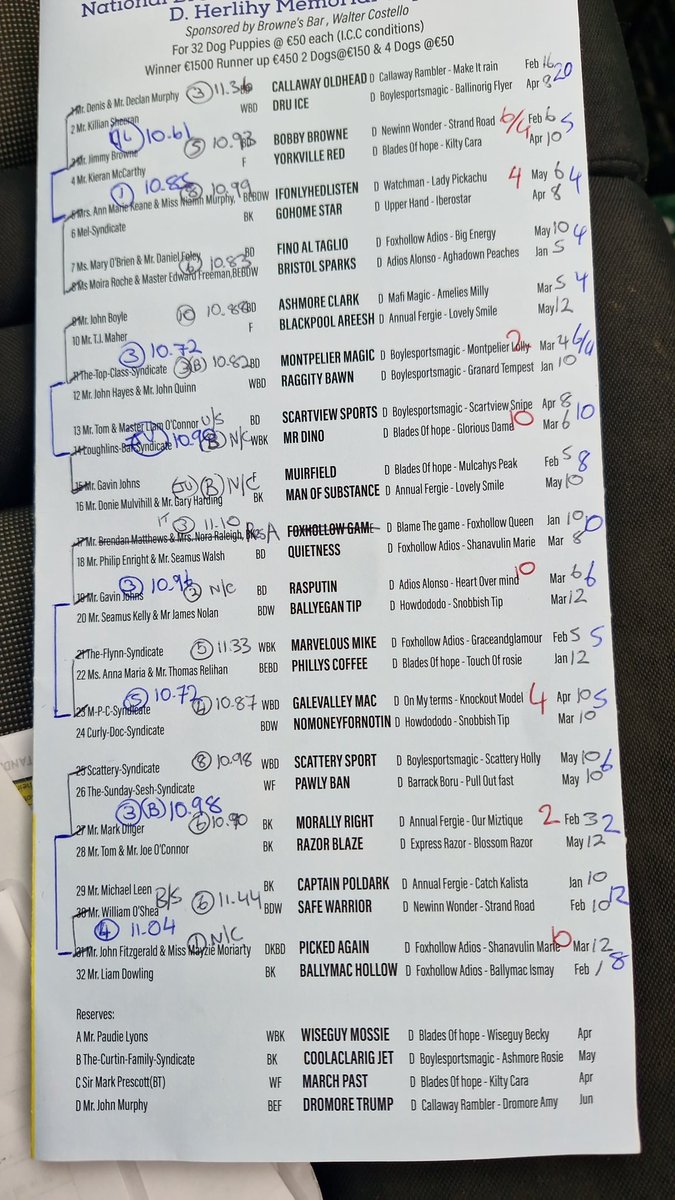 D. Herlihy Memorial
Sponsored by Browne's Bar, Walter Costello
For 32 Dog Puppies @ €50 each (I.C.C conditions)
Winner €1500 Runner up €450 2 Dogs@€150 & 4 Dogs @€50
1 Mr. Denis & Mr. Declan Murphy 3 11.36 CALLAWAY OLDHEAD D Callaway Rambler - Make It rain Feb 16 20
2 Mr. Killian Sheeran WBD DRU ICE D Boylesportsmagic - Ballinorig Flyer Apr 8
10.61
3 Mr. Jimmy Browne 5 10.93 BD BOBBY BROWNE D Newinn Wonder - Strand Road 6/4 Feb 6 5
4 Mr. Kieran McCarthy F YORKVILLE RED D Blades Of hope - Kilty Cara Apr 10
1 10.85
5 Mrs. Ann Marie Keane & Miss Niamh Murphy, 8 10.99 BEBDW IFONLYHEDLISTEN D Watchman - Lady Pickachu 4 May 6 4
6 Mel-Syndicate BK GOHOME STAR D Upper Hand - Iberostar Apr 8
7 Ms. Mary O'Brien & Mr. Daniel Foley 6 10.83 BD FINO AL TAGLIO D Foxhollow Adios - Big Energy May 10 4
8 Ms Moira Roche & Master Edward Freeman, BEBDW BRISTOL SPARKS D Adios Alonso - Aghadown Peaches Jan 5
9 Mr. John Boyle 10 10.88 BD ASHMORE CLARK D Mafi Magic - Amelies Milly Mar 5 4
10 Mr. T.J. Maher F BLACKPOOL AREESH D Annual Fergie - Lovely Smile May 12
3 10.72
11 The-Top-Class-Syndicate 3 (B) 10.82 BD MONTPELIER MAGIC D Boylesportsmagic - Montpelier Lolly 2 Mar 4 6/4
12 Mr. John Hayes & Mr. John Quinn WBD RAGGITY BAWN D Boylesportsmagic - Granard Tempest Jan 10
13 Mr. Tom & Master Liam O'Connor U/S BD SCARTVIEW SPORTS D Boylesportsmagic - Scartview Snipe Apr 8 10
14 Loughlins-Bar-Syndicate N/C WBK MR DINO D Blades Of hope - Glorious Dama 10 Mar 6
15 Mr. Gavin Johns (B) N/C F MUIRFIELD D Blades Of hope - Mulcahys Peak Feb 5 8
16 Mr. Donie Mulvihill & Mr. Gary Harding BK MAN OF SUBSTANCE D Annual Fergie - Lovely Smile May 10
3 11.10
17 Mr. Brendan Matthews & Mrs. Nora Raleigh, Res A FOXHOLLOW GAME D Blame The game - Foxhollow Queen Jan 10
18 Mr. Philip Enright & Mr. Seamus Walsh BD QUIETNESS D Foxhollow Adios - Shanavulin Marie Mar 8
3 10.96
19 Mr. Gavin Johns N/C BD RASPUTIN D Adios Alonso - Heart Over mind 10 Mar 6 6
20 Mr. Seamus Kelly & Mr James Nolan BDW BALLYEGAN TIP D Howdododo - Snobbish Tip Mar 12
21 The-Flynn-Syndicate 5 11.33 WBK MARVELOUS MIKE D Foxhollow Adios - Graceandglamour Feb 5 5
22 Ms. Anna Maria & Mr. Thomas Relihan BEBD PHILLYS COFFEE D Blades Of hope - Touch Of rosie Jan 12
5 10.72
23 M-P-C-Syndicate 10.87 WBD GALEVALLEY MAC D On My terms - Knockout Model 4 Apr 10 5
24 Curly-Doc-Syndicate BDW NOMONEYFORNOTIN D Howdododo - Snobbish Tip Mar 10
25 Scattery-Syndicate 8 10.98 WBD SCATTERY SPORT D Boylesportsmagic - Scattery Holly May 10 6
26 The-Sunday-Sesh-Syndicate WF PAWLY BAN D Barrack Boru - Pull Out fast May 10
3 (B) 10.98
27 Mr. Mark Dilger 6 10.90 BK MORALLY RIGHT D Annual Fergie - Our Miztique 2 Feb 3 2
28 Mr. Tom & Mr. Joe O'Connor BK RAZOR BLAZE D Express Razor - Blossom Razor May 12
29 Mr. Michael Leen B/S BK CAPTAIN POLDARK D Annual Fergie - Catch Kalista Jan 10
30 Mr. William O'Shea 6 11.44 BDW SAFE WARRIOR D Newinn Wonder - Strand Road Feb 10 12
4 11.04
31 Mr. John Fitzgerald & Miss Mayzie Moriarty 1 N/C DKBD PICKED AGAIN D Foxhollow Adios - Shanavulin Marie Mar 12
32 Mr. Liam Dowling BK BALLYMAC HOLLOW D Foxhollow Adios - Ballymac Ismay Feb 1 8
Reserves:
A Mr. Paudie Lyons WBK WISEGUY MOSSIE D Blades Of hope - Wiseguy Becky Apr
B The-Curtin-Family-Syndicate BK COOLACLARIG JET D Boylesportsmagic - Ashmore Rosie May
C Sir Mark Prescott(BT) WF MARCH PAST D Blades Of hope - Kilty Cara Apr
D Mr. John Murphy BEF DROMORE TRUMP D Callaway Rambler - Dromore Amy Jun